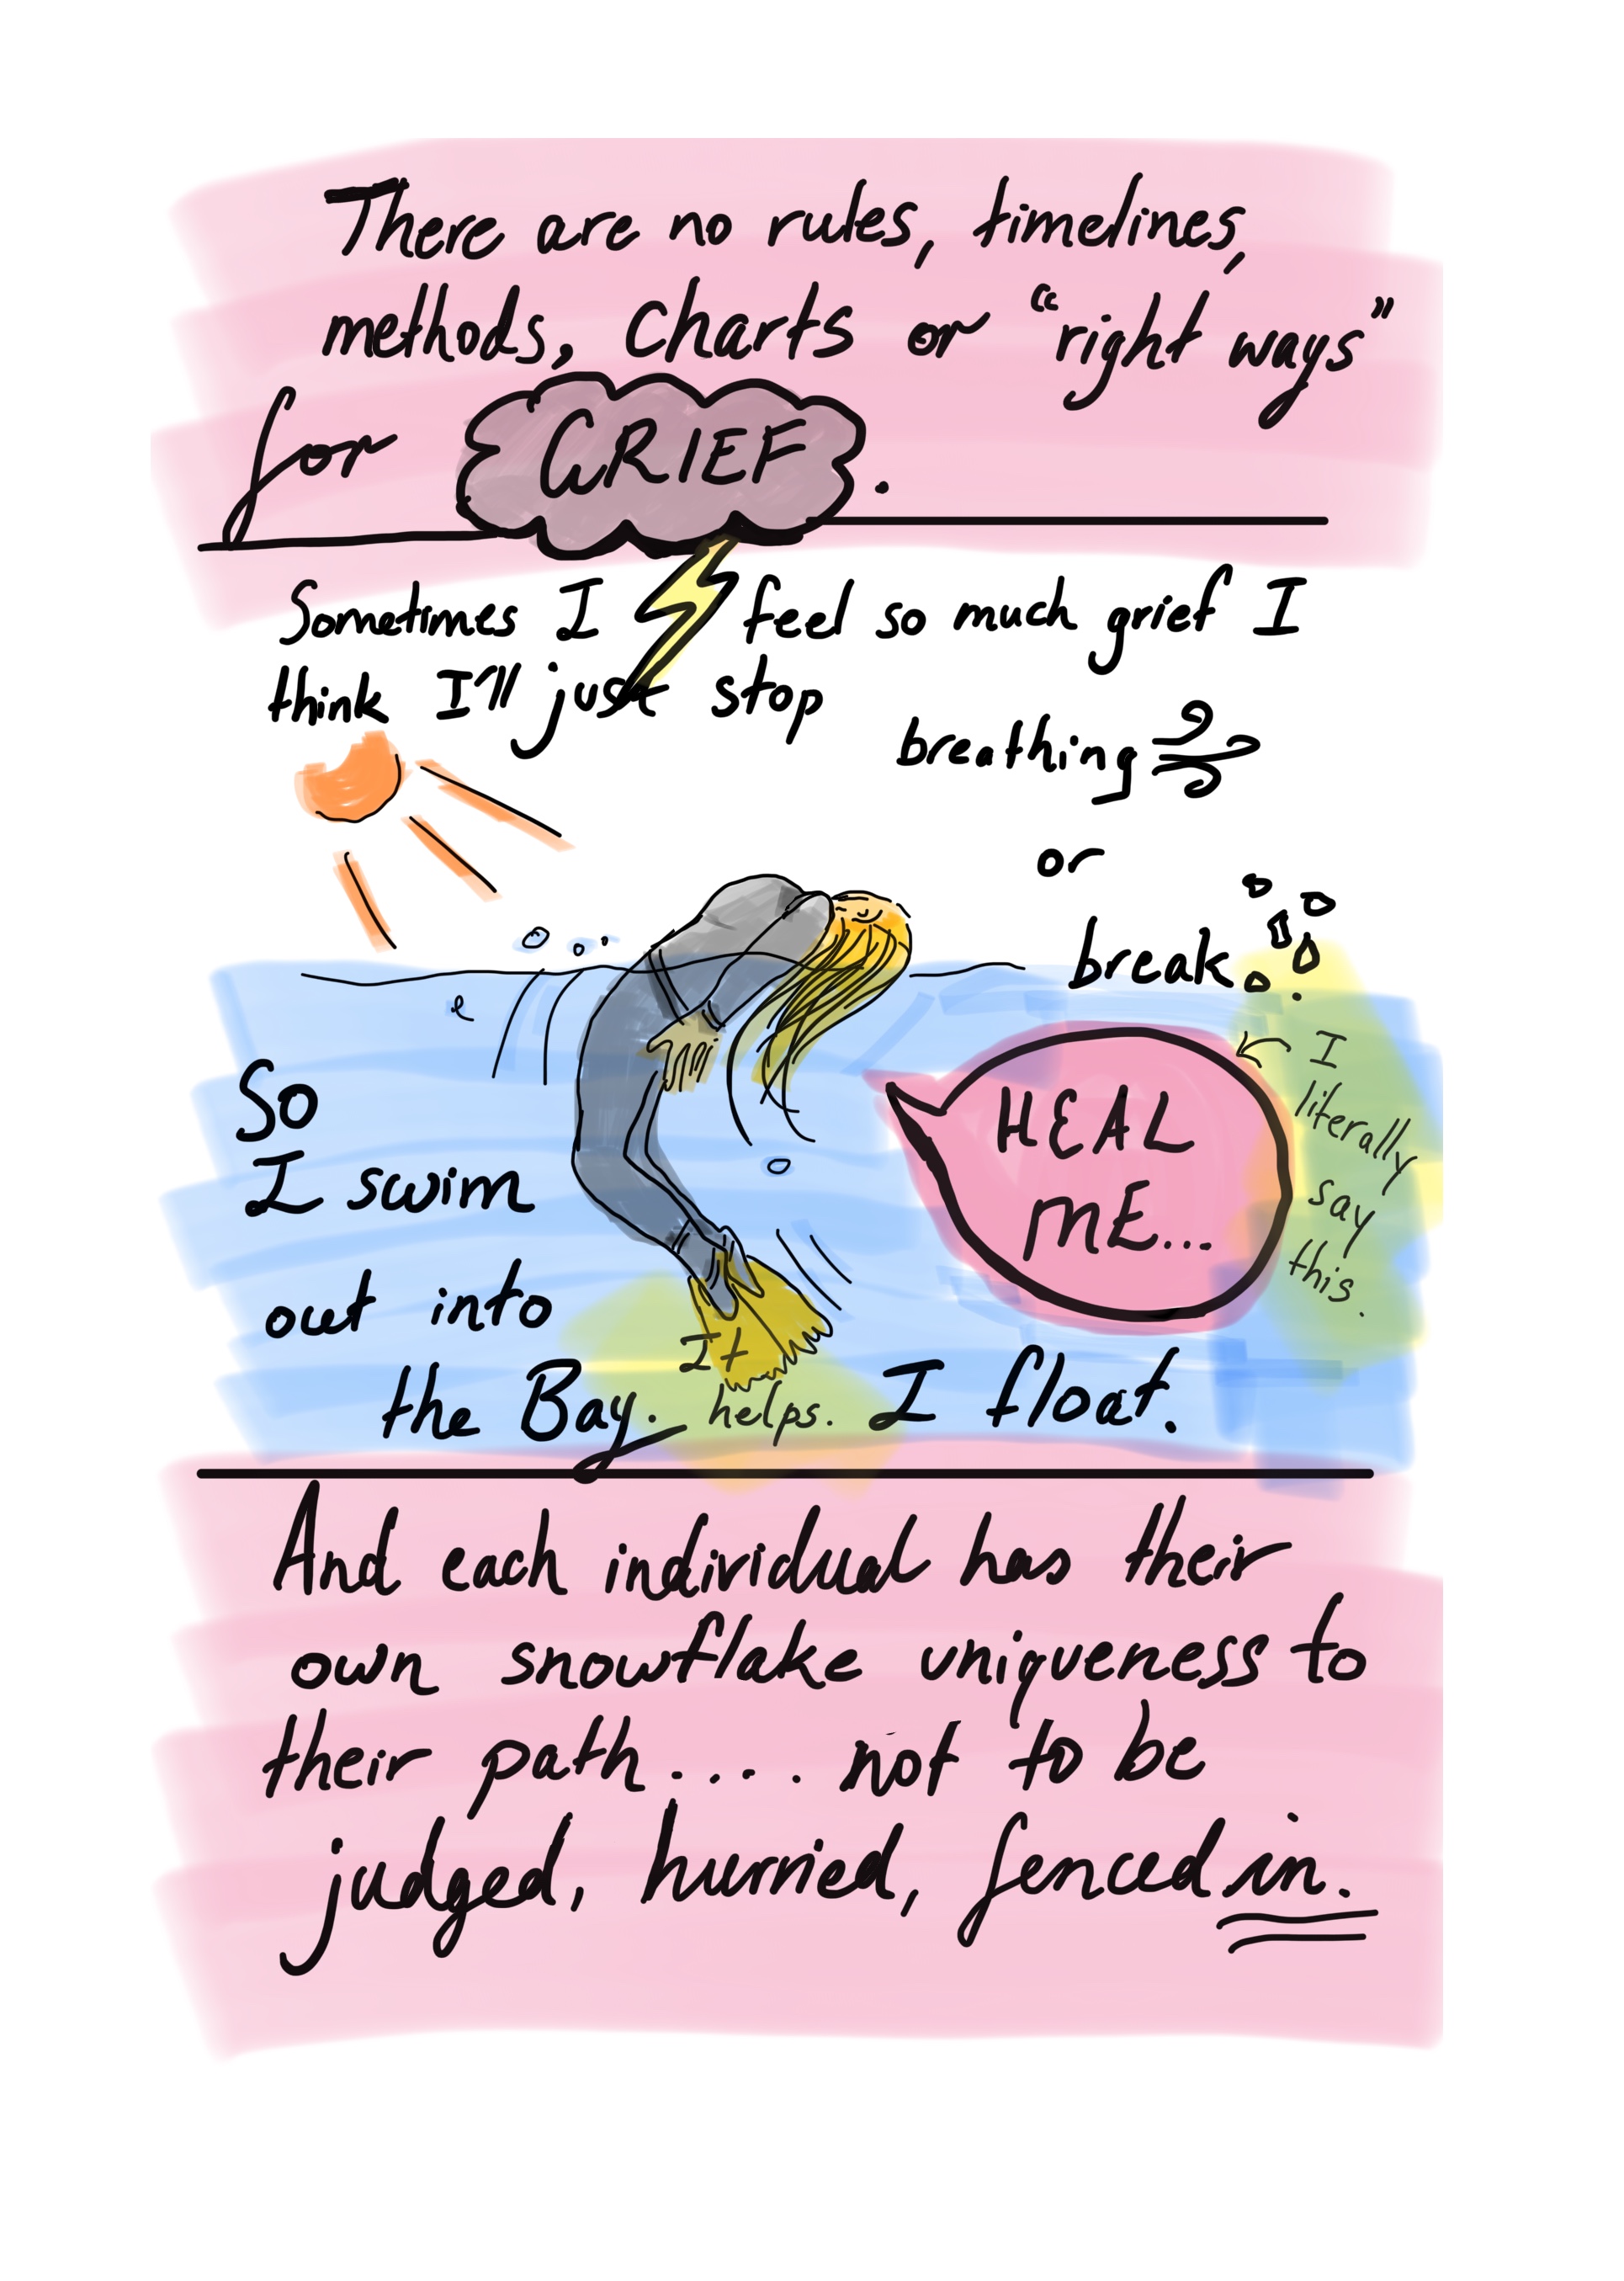 There are no rules, timelines,
methods, charts or "right ways"
for GRIEF.
Sometimes I feel so much grief I
think I'll just stop
breathing
or
break.
So
I swim
out into
the Bay.
It
helps.
I float.
HEAL
ME...
I
literally
say
this.
And each individual has their
own snowflake uniqueness to
their path.... not to be
judged, hurried, fenced in.